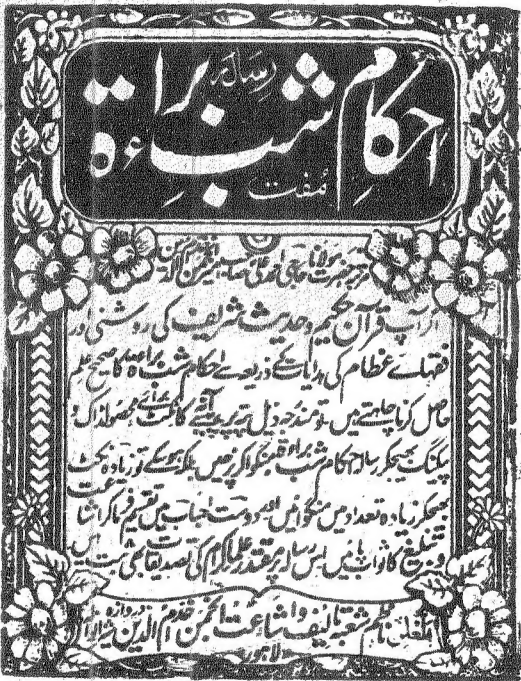 رسالہ
احکام شب براءۃ
مفت
حضرت مولانا حاجی احمد علی صاحب امیر انجمن خدام الدین
اگر آپ قرآن حکیم و حدیث شریف کی روشنی اور
فقہائے عظام کی ہدایات کے ذریعے احکام شب براءۃ کا صحیح علم
حاصل کرنا چاہتے ہیں۔ تو مندرجہ ذیل پتہ پر پیسے کا ٹکٹ برائے محصولڈاک و
پیکنگ بھیجکر رسالہ احکام شب براءۃ منگوا کر پڑھیں بلکہ ہو سکے تو زیادہ ٹکٹ
بھیجکر زیادہ تعداد میں منگوائیں اور دوست احباب میں تقسیم فرما کر اشاعت
و تبلیغ کا ثواب پائیں اس رسالہ پر مقتدر علماء کرام کی تصدیقات بھی ثبت ہیں
ناظم شعبہ تالیف و اشاعت انجمن خدام الدین دروازہ شیرانوالہ
لاہور